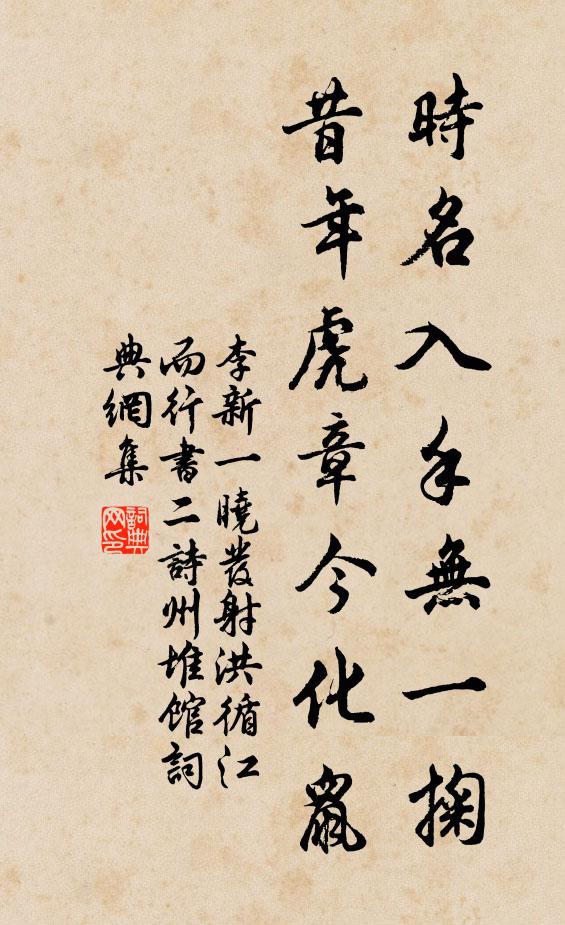 時名入手無一掬
昔年虎章今化鼠
李新一曉發射洪循江
而行書二詩州堆館詞
典網集
詞典网印